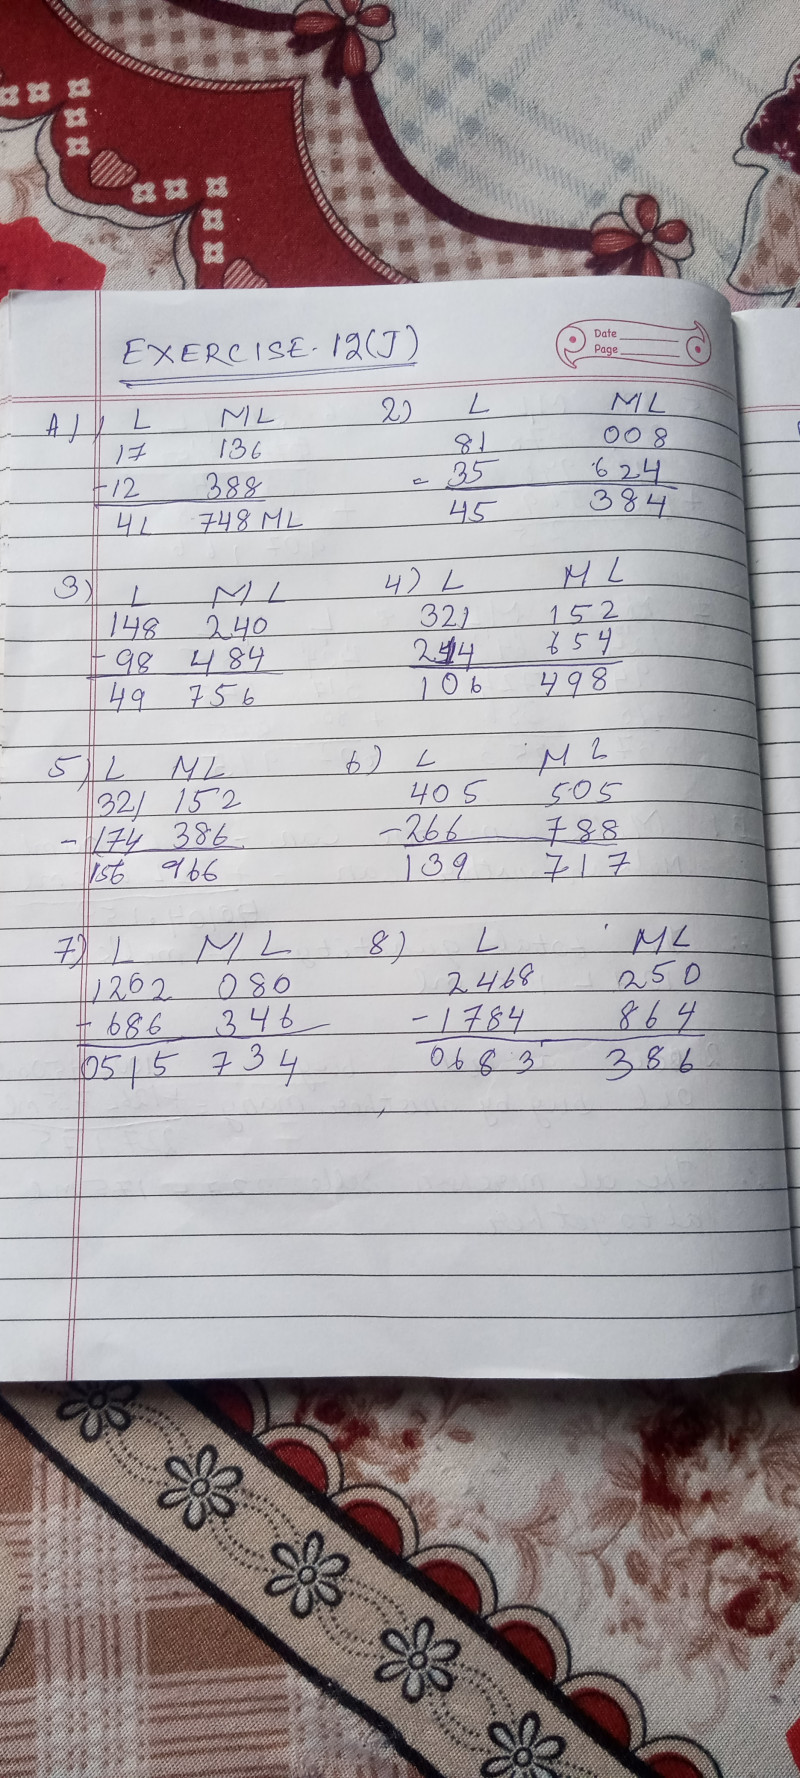 EXERCISE. 12(J)
Date
Page
A) 1) L ML 2) L ML
17 136 81 008
-12 388 - 35 624
4L 748 ML 45 384
3) L ML 4) L ML
148 240 321 152
-98 484 654
49 756 106 498
5) L ML 6) L ML
321 152 405 505
-174 386 -266 788
156 966 139 717
7) L ML 8) L ML
1202 080 2468 250
-686 346 -1784 864
0515 734 0683 386